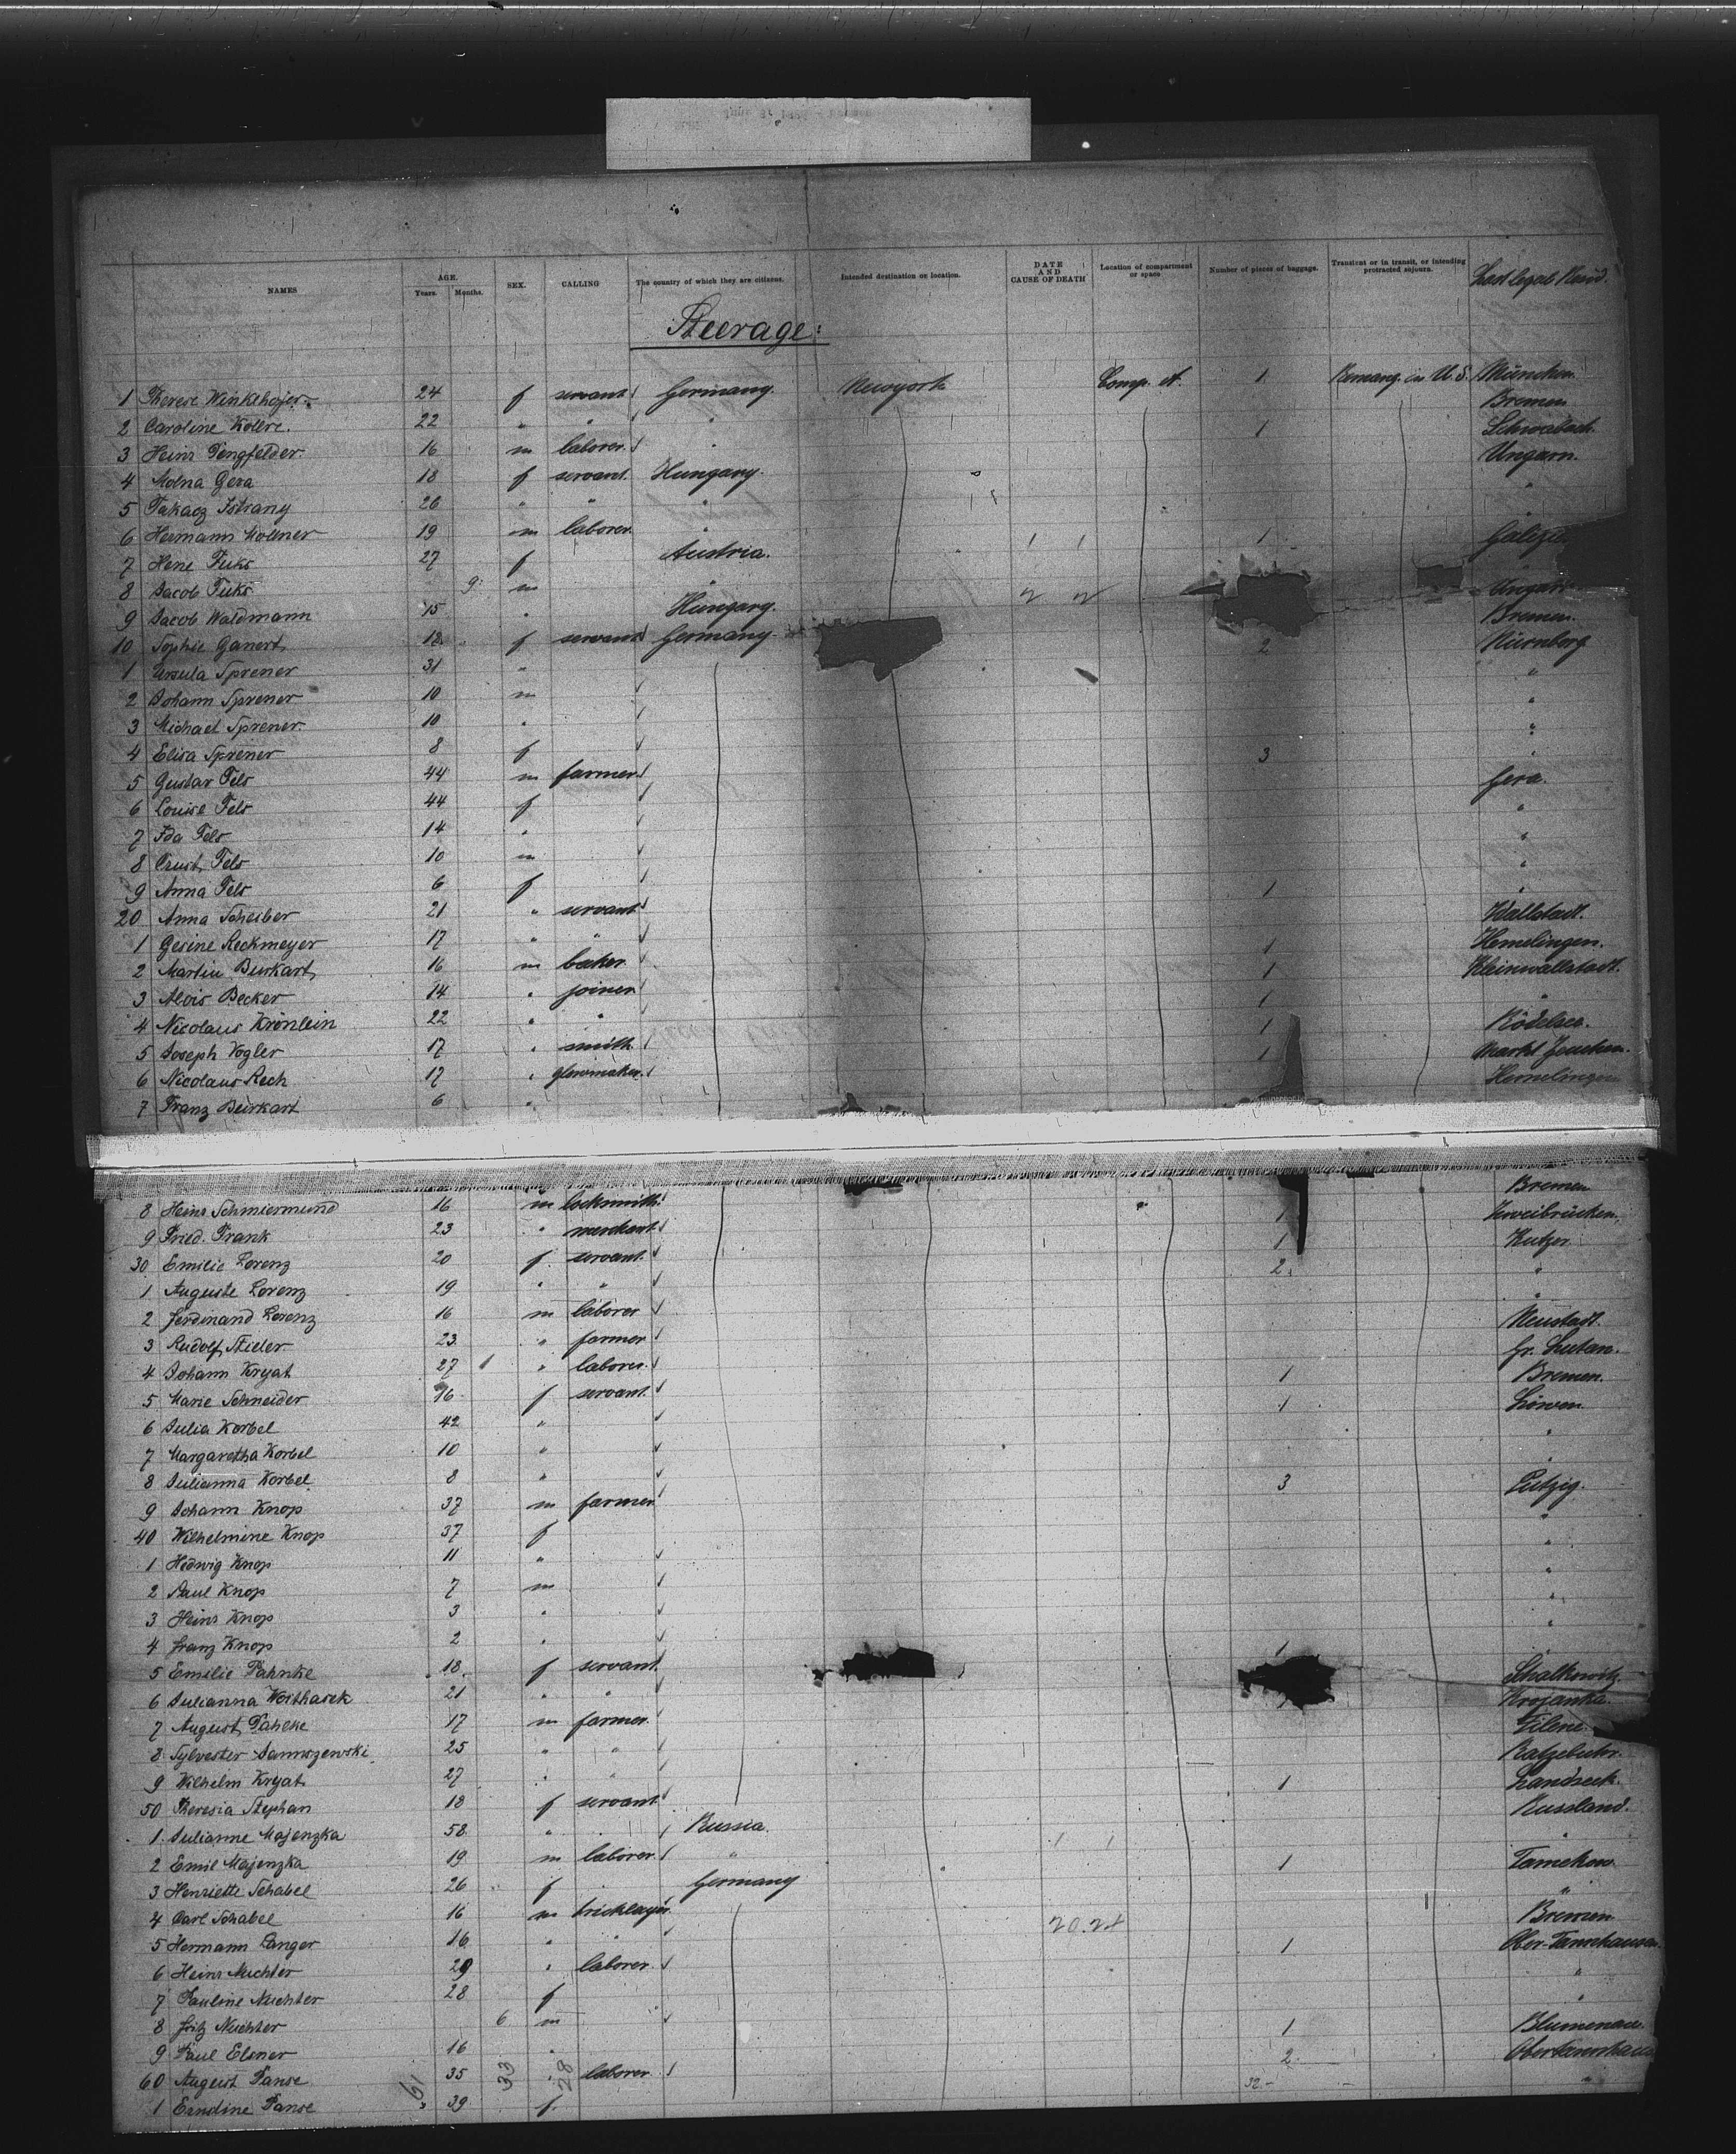 NAMES AGE. Years. Months. SEX. CALLING The country of which they are citizens. Intended destination or location. DATE AND CAUSE OF DEATH Location of compartment or space Number of pieces of baggage. Transient or in transit, or intending protracted sojourn. Last legal Resid.
Steerage:
1 Therese Winklhofer 24 f servant Germany. Newyork Comp. A. 1 Remang. in U.S. München
2 Caroline Kollre. 22 " " " Bremen
3 Heinr Pengfelder 16 m laborer. " 1 Schwabach.
4 Molna Gera 18 f servant. Hungary. Ungarn.
5 Takacz Istrany 26 " " " "
6 Hermann Mollner 19 m laborer. " "
7 Hene Fuks 27 f Austria. 1
8 Jacob Fuks 9 m " "
9 Jacob Waldmann 15 " Hungary. Ungarn
10 Sophie Ganert 18 f servant Germany Bremen.
1 Ursula Sprener 31 " 2 Nürnberg
2 Johann Sprener 10 m "
3 Michael Sprener. 10 " "
4 Elisa Sprener 8 f "
5 Gustav Fels 44 m farmer 3 Gera.
6 Louise Fels 44 f "
7 Ida Fels 14 " "
8 Ernst Fels 10 m "
9 Anna Fels 6 f "
20 Anna Scheiber 21 " servant 1 Wallstadt.
1 Gesine Reckmeyer 17 " " Hemelingen.
2 Martin Burkart 16 m baker 1 Kleinwallstadt.
3 Alois Becker 14 " joiner 1 "
4 Nicolaus Krönlein 22 " " 1 Rödelsee.
5 Joseph Vogler 17 " smith. 1 Markt
6 Nicolaus Rech 17 " 1 Hemelingen
7 Franz Burkart 6 "
8 Heinr Schmiermund 16 m locksmith. Bremen
9 Fried. Frank 23 " merchant. 1 Zweibrücken.
30 Emilie Lorenz 20 f servant. 1 Kutzer
1 Auguste Lorenz 19 " " 2 "
2 Ferdinand Lorenz 16 m laborer "
3 Rudolf Stieler 23 " farmer Neustadt.
4 Johann Kryat 27 " laborer. Gr. Lutau.
5 Marie Schneider 16 f servant. 1 Bremen.
6 Julia Korbel 42 " 1 Löwen
7 Margaretha Korbel 10 " "
8 Julianna Korbel. 8 " "
9 Johann Knop 37 m farmer 3 Putzig.
40 Wilhelmine Knop 37 f "
1 Hedwig Knop 11 " "
2 Paul Knop 7 m "
3 Heinr Knop 3 " "
4 Franz Knop 2 " "
5 Emilie Pahnke 18 f servant 1 "
6 Julianna Woithasek 21 " " Schalkowitz
7 August Pahlke 17 m farmer. Krojanka.
8 Sylvester Januszewski 25 " " Filene.
9 Wilhelm Kryat 27 " " Ratzebuhr.
50 Theresia Stephan 18 f servant 1 Landseck.
1 Julianne Majenzka 58. " Russia. Russland.
2 Emil Majenzka 19 m laborer. " "
3 Henriette Schabel 26 f Germany 1
4 Carl Schabel 16 m bricklayer "
5 Hermann Langer 16 " " Bremen
6 Heinr Nuchter 29 " laborer. 1 Ober-Tannhausen
7 Pauline Nuchter 28 f "
8 Fritz Nuchter 6 m "
9 Paul Elsner 16 " 1 Blumenau.
60 August Panse 35 " laborer 2
1 Ernstine Panse 39 f. 32.- "